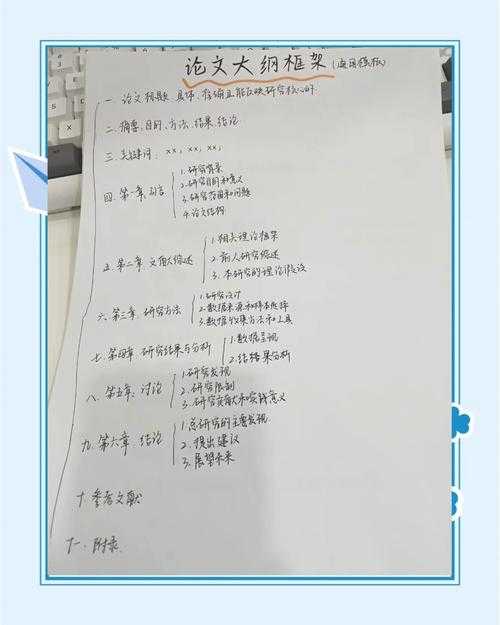 论文大纲框架(通用模板)
一.论文标题:具体、准确且能反映研究核心的
二.摘要:目的、方法、结果、结论
三.关键词:xx,xx,xx,
四.第一章.引言
1.研究背景
2.研究目的和意义
3.研究范围和问题
4.论文结构
五.第二章.文献综述
1.相关理论框架
2.前人研究综述
3.本研究的理论假设
六.第三章.研究方法
1.研究设计
2.数据来源和样本选择
3.数据收集方法和工具
七.第四章 研究结果与分析
1.数据呈现
2.结果分析
八.第五章.讨论
1.研究发现
2.研究限制
3.研究贡献和实践意义
九.第六章 结论
1.总研究的主要发现
2.提出建议
3.展望未来
十.参考文献
十一.附录.